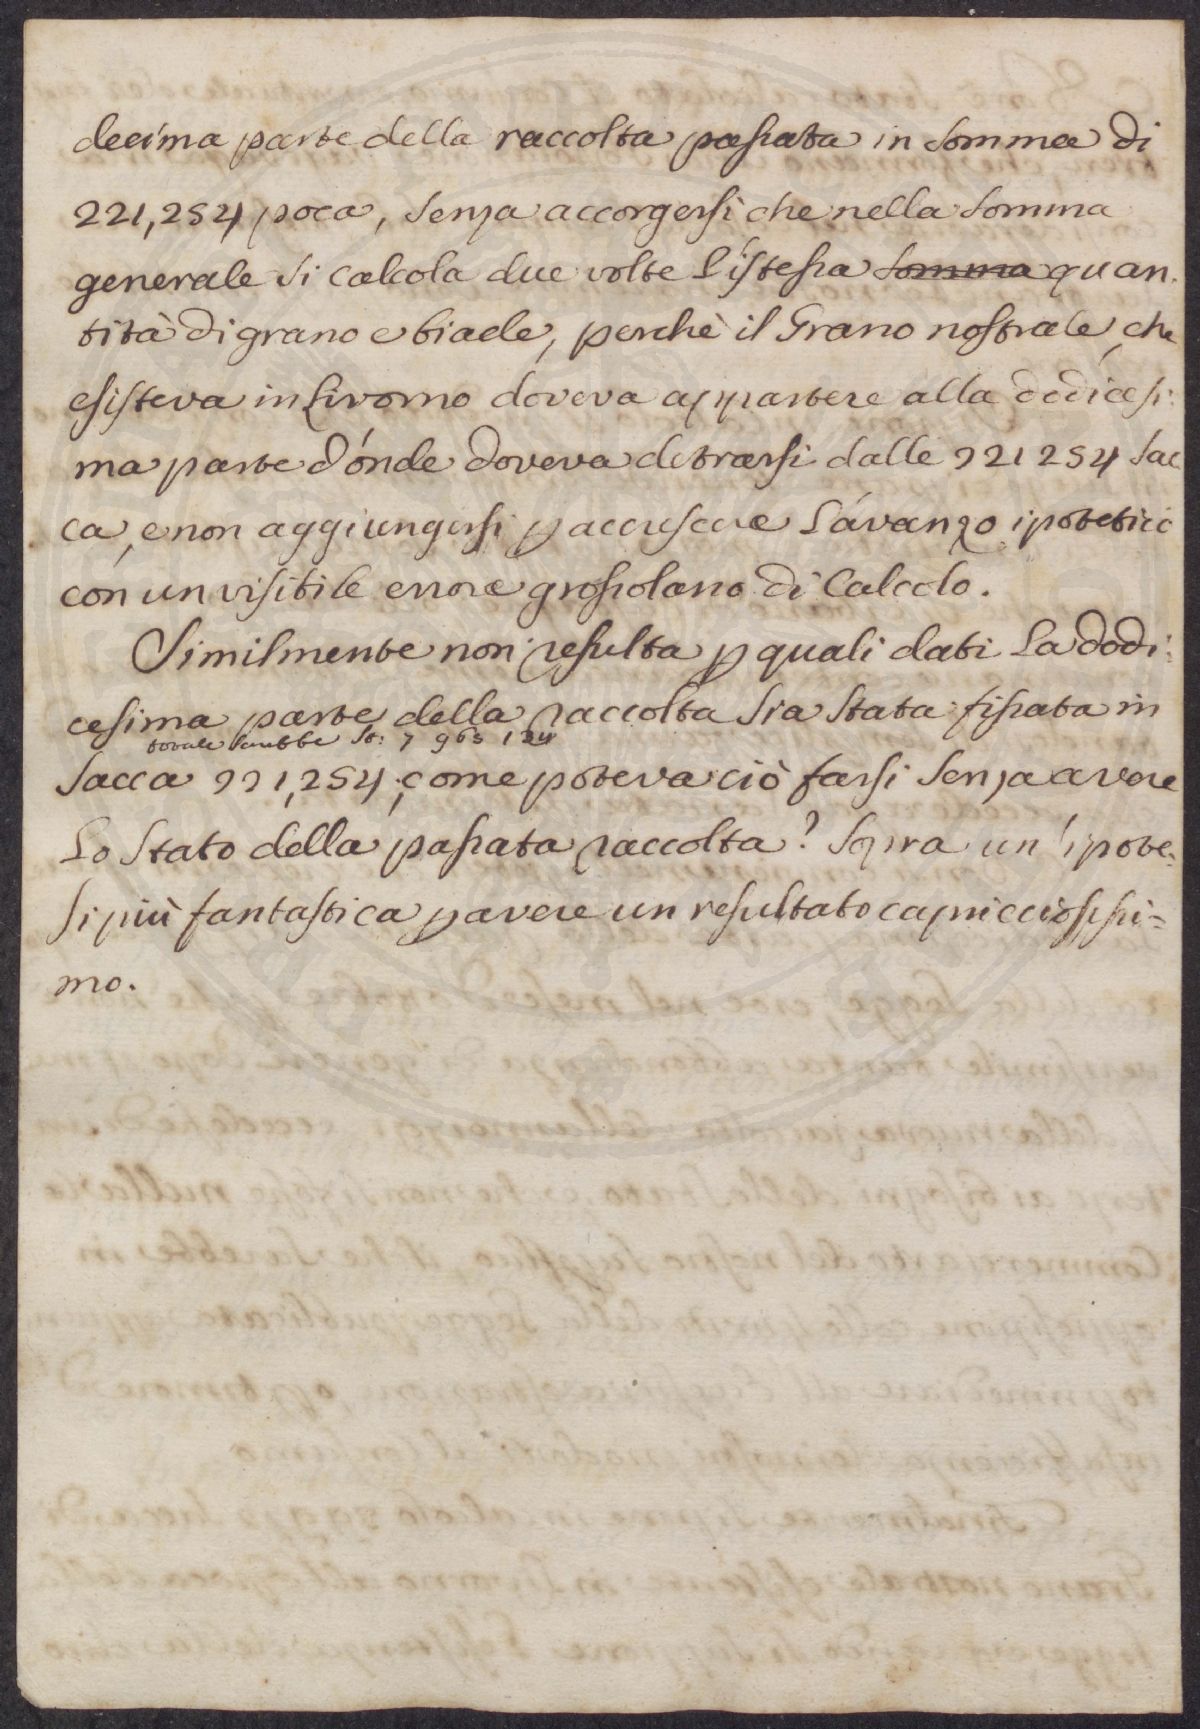 decima parte della raccolta passata in somma di
221,254 poca, senza accorgersi che nella somma
generale si calcola due volte l'istessa somma quan-
tità di grano e biade, perchè il Grano nostrale che
esisteva in Livorno doveva appartere alla dodicesi-
ma parte d'onde doveva detrarsi dalle 221254 sac
ca, e non aggiungersi p accrescere l'avanzo ipotetico
con un visibile errore grossolano di Calcolo.
Similmente non resulta p quali dati la dodi-
cesima parte della raccolta sia stata fissata in
totale sarebbe
sacca 221,254; come poteva ciò farsi senza avere
lo stato della passata raccolta? Sopra un'ipote-
si più fantastica p avere un resultato capricciosissi=
mo.